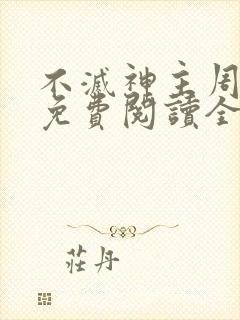 不滅神主周
免費閱讀全
莊丹